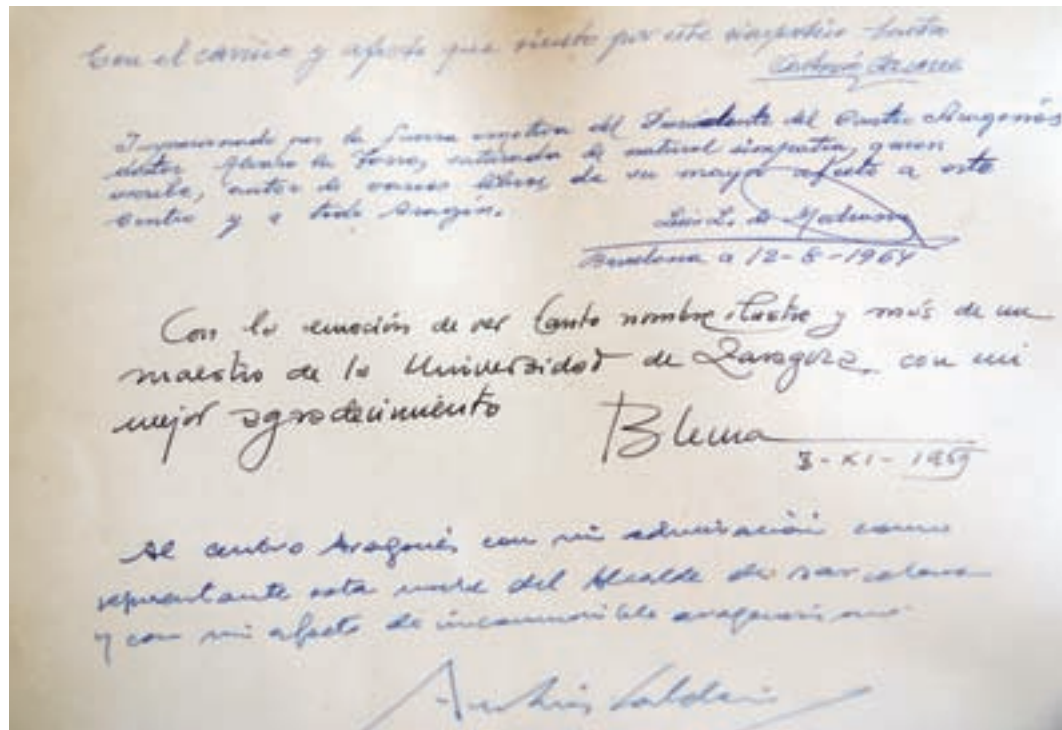 Con el cariño y afecto que siento por este simpático
Impresionado por la fuerza emotiva del Presidente del Centro Aragonés
doctor Alvaro de la Torre, saturada de natural simpatía, quien
escribe, autor de varios libros da su mayor afecto a este
Centro y a todo Aragón.
Luis L. de
Barcelona a 12-8-1964
Con la emoción de ver tanto nombre ilustre y más de un
maestro de la Universidad de Zaragoza, con mi
mejor agradecimiento
Blecua
3-XI-1969
Al centro Aragonés con mi admiración como
representante esta noche del Alcalde de Barcelona
y con mi afecto de inconmovible aragonesismo